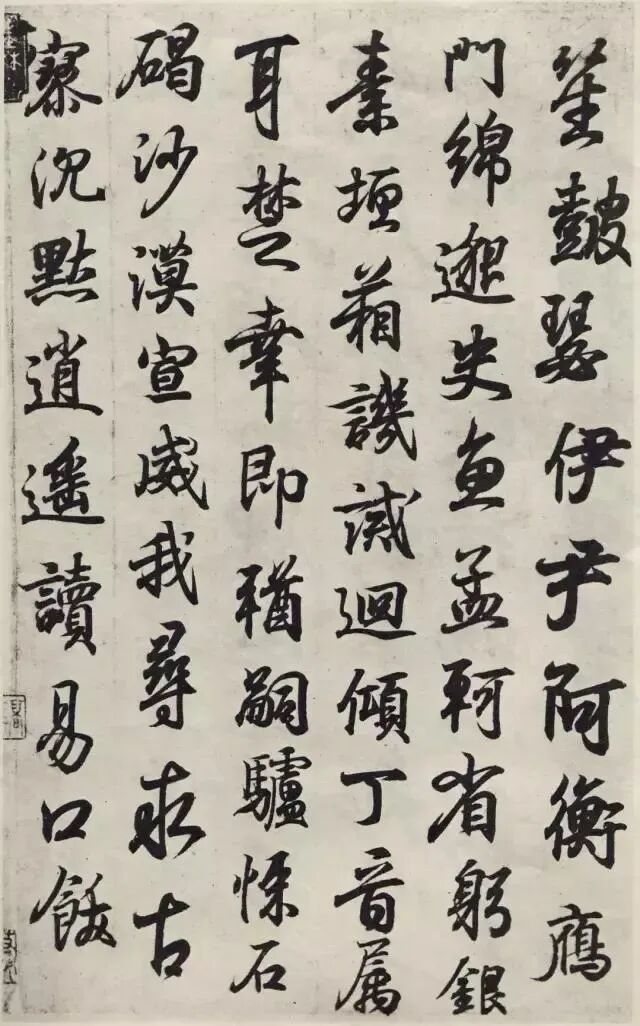 笙皷瑟伊尹阿衡鴈
門綿邈史魚孟軻省躬銀
素垣葙譏誡迴傾丁音属
耳楚幸即猶嗣驢悚石
碣沙漠宣威我尋求古
寮沉點逍遥讀易口飯